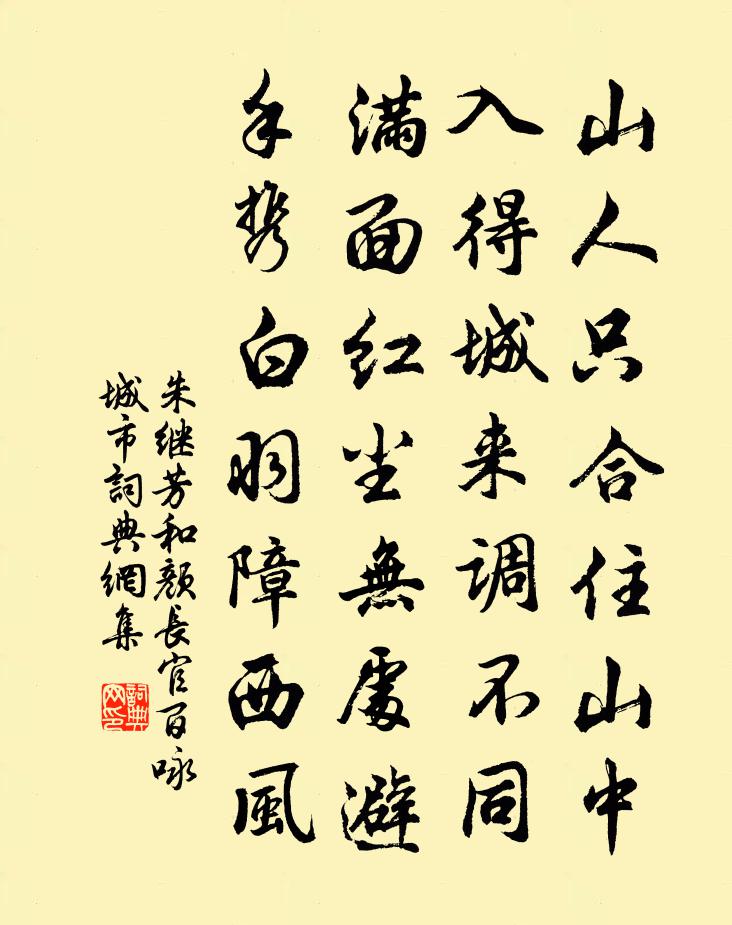 山人只合住山中
入得城来调不同
满面红尘無處避
手携白羽障西風
朱继芳和颜長官百咏
城市詞典網集
詞典网印